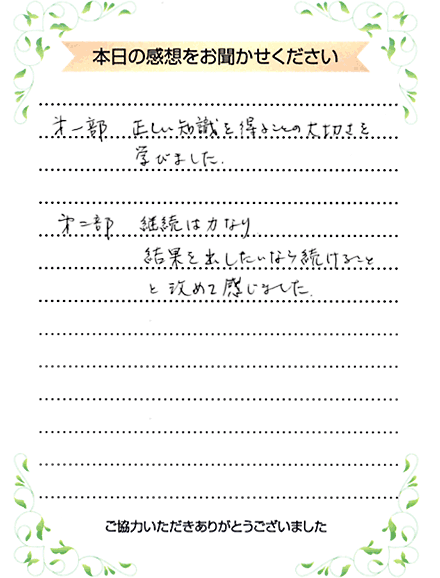 本日の感想をお聞かせください
第一部 正しい知識を得ることの大切さを
学びました.
第二部 継続は力なり
結果を出したいなら続けること
と改めて感じました.
ご協力いただきありがとうございました